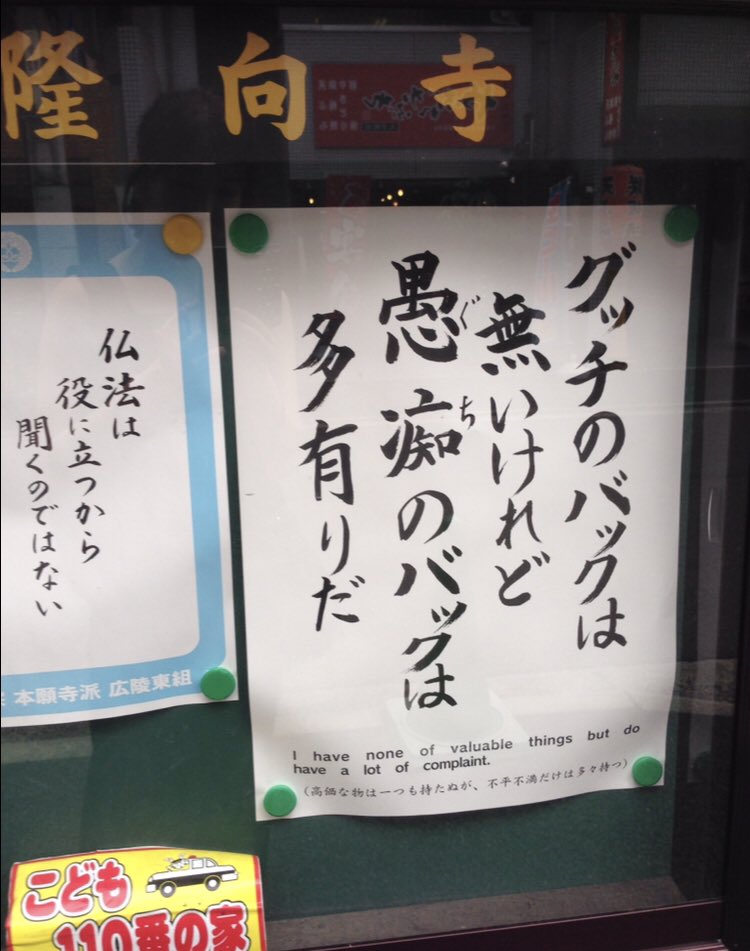 隆向寺
グッチのバックは
無いけれど
愚痴のバッグは
ぐち
多有りだ
I have none of valuable things but do
have a lot of complaint.
（高価な物は一つも持たぬが、不平不満だけは多々持つ）
仏法は
役に立つから
聞くのではない
本願寺派 広陵東組
こども
110番の家